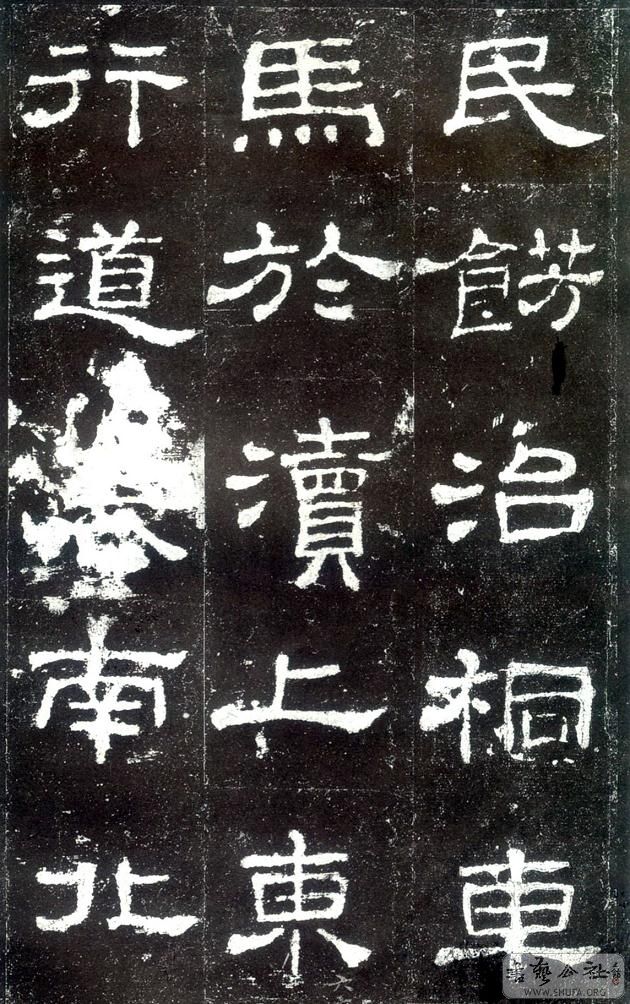 民餝治桐車
馬於瀆上東
行道南北
書藝公社
WWW.SHUFA.ORG